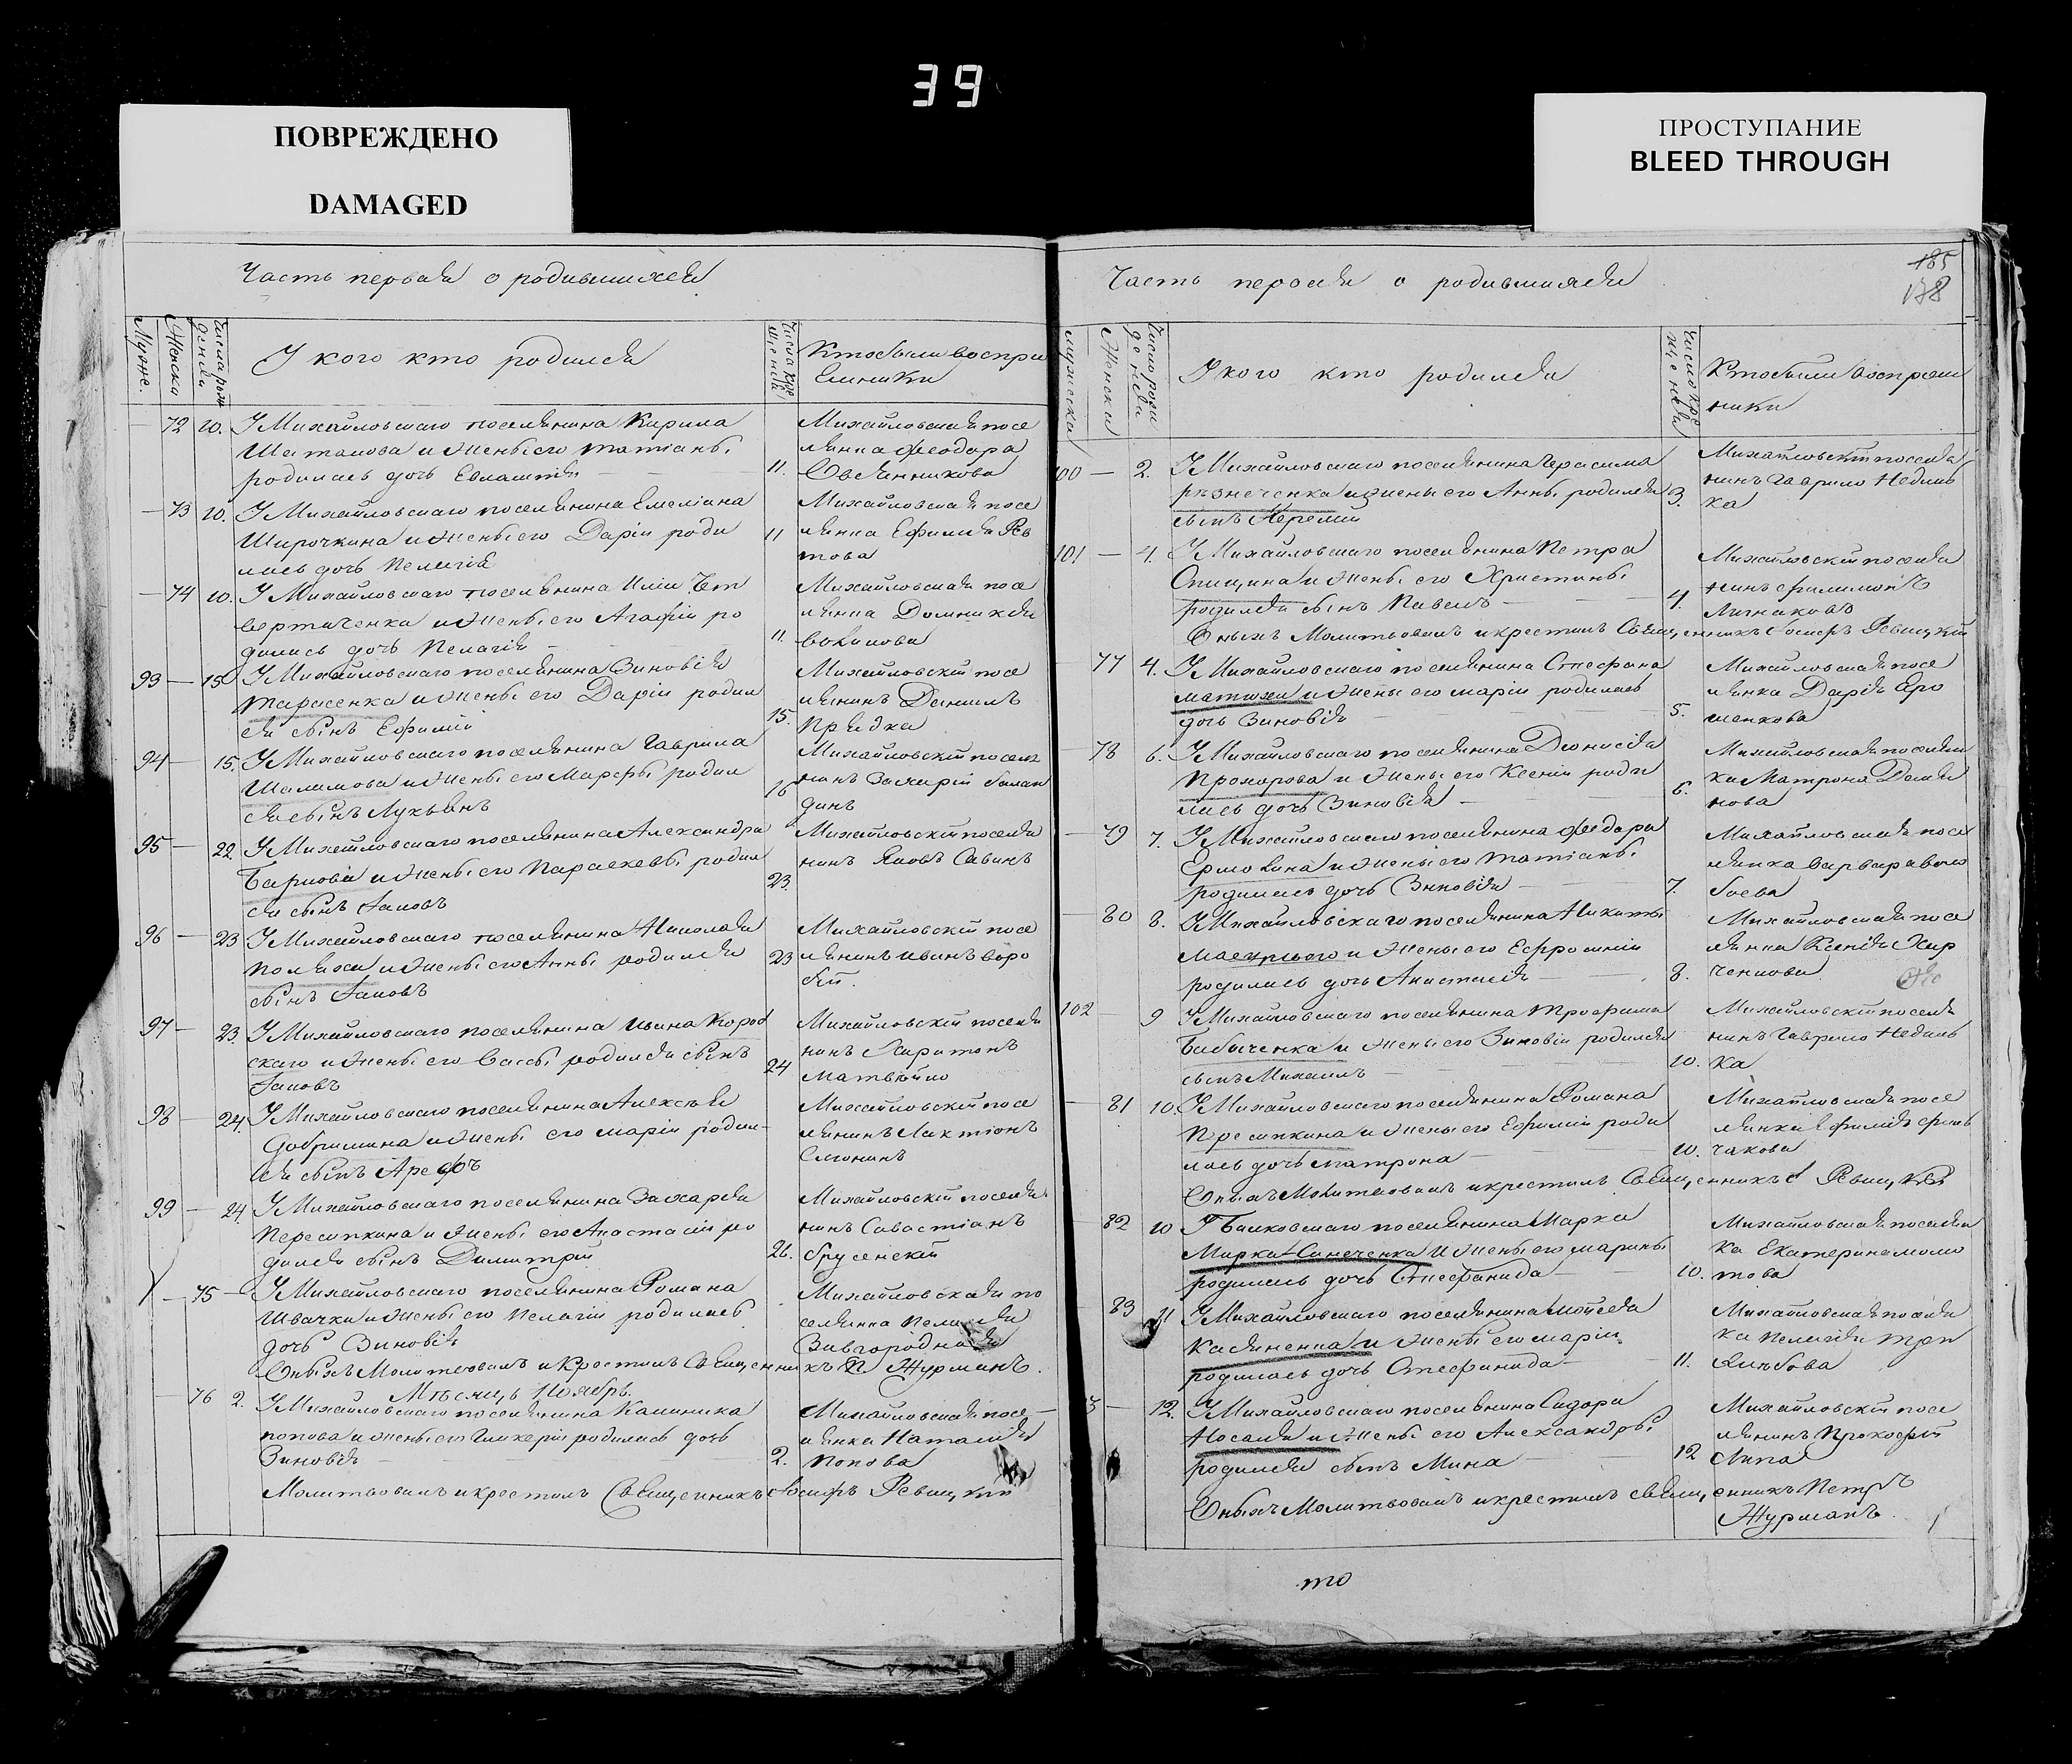 39
ПОВРЕЖДЕНО
DAMAGED
ПРОСТУПАНИЕ
BLEED THROUGH
Часть первая о родившихся
Мужс. Женски Числа рож дения
У кого кто родился
Числа кре щения
Кто были воспри
емники
72 10. У Михайловскаго поселянина Кирила
Шаталова и жены его Татіаны
родилась дочь Евлампія
11.
Михайловская посе
лянка Феодора
Овсянникова
73 10. У Михайловскаго поселянина Емеліана
Широчкина и жены его Даріи роди
лась дочь Пелагія
11
Михайловская посе
лянка Ефимія
74 10. У Михайловскаго поселянина Иліи
и жены его Агафіи ро
дилась дочь Пелагія
11.
Михайловская посе
лянка Домникія
93 15 У Михайловскаго поселянина Зиновія
Тарасенка и жены его Даріи родил
ся сынъ Ефимій
15.
Михайловскій посе
лянинъ Даніилъ
Прядка
94 15. У Михайловскаго поселянина Гаврила
Шалимова и жены его Марфы родил
ся сынъ Лукьянъ
16
Михайловскій поселя
нинъ Захарій Балан
динъ
95 22 У Михайловскаго поселянина Александра
и жены его Параскевы родил
ся сынъ Іаковъ
23.
Михайловскій поселя
нинъ Яковъ Савинъ
96 23 У Михайловскаго поселянина Николая
Поляха и жены его Анны родился
сынъ Іаковъ
23
Михайловскій посе
лянинъ Иванъ
97 23. У Михайловскаго поселянина Ивана Кород
скаго и жены его Вассы родился сынъ
Іаковъ
24
Михайловскій поселя
нинъ Харитонъ
98 24. У Михайловскаго поселянина Алексѣя
Добрынина и жены его Маріи родил-
ся сынъ Арефъ
Михайловскій посе
лянинъ Лактіонъ
99 24. У Михайловскаго поселянина Захарія
Пересыпкина и жены его Анастасіи ро
дился сынъ Димитрій
26.
Михайловскій поселя
нинъ Савастіанъ
Брусенскій
75 У Михайловскаго поселянина Романа
Швачки и жены его Пелагіи родилась
дочь Зиновія
Михайловская по
селянка Пелагія
Завгородная
Оныхъ Молитвовалъ и Крестилъ Священникъ П. Журманъ.
Мѣсяцъ Ноябрь.
76 2. У Михайловскаго поселянина Калиника
Попова и жены его Гликеріи родилась дочь
Зиновія
2.
Михайловская посе
лянка Наталія
Попова
Молитвовалъ и крестилъ Священникъ Іосифъ Ревицкій
185
178
Часть первая о родившихся
мужеска Женски Число рож дения
У кого кто родился
Число кре щения
Кто были воспрiем
ники
100 2. У Михайловскаго поселянина Герасима
рѣзнеченка и жены его Анны родился
сынъ Іеремій
3.
Михайловскій поселя
нинъ Гаврило Недиль
ка
101 4. У Михайловскаго поселянина Петра
Спицина и жены его Христины
родился сынъ Павелъ
4.
Михайловскій поселя
нинъ Филимонъ
Оныхъ Молитвовалъ и крестилъ Священникъ Іосифъ Ревицкій
77 4. У Михайловскаго поселянина Стефана
матюхи и жены его маріи родилась
дочь Зиновія
5.
Михайловская посе
лянка Дарія Ярo
шенкова
78 6. У Михайловскаго поселянина Діонисія
Прохорова и жены его Ксеніи роди
лась дочь Зиновія
6.
Михайловская поселян
ка Матрона Демя
нова
79 7. У Михайловскаго поселянина Федора
Ермокина и жены его Татіаны
родилась дочь Зиновія
7.
Михайловская посе
лянка Варвара
80 8. У Михайловскаго поселянина Никиты
и жены его Ефросиніи
родилась дочь Анастасія
8.
Михайловская посе
лянка Ксенія Хар
ченкова
102 9 У Михайловскаго поселянина Трофима
Бабыченка и жены его Зиновіи родился
сынъ Михаилъ
10.
Михайловскій поселя
нинъ Гаврило Недиль
ка
81 10. У Михайловскаго поселянина Романа
Пресипкина и жены его Ефиміи роди
лась дочь матрона
10.
Михайловская посе
лянка Ефимія
чакова
Оныхъ Молитвовалъ и крестилъ Священникъ І Ревицкій
82 10 У Бaлковскаго поселянина Марка
Марка Санеченка и жены его марины
родилась дочь Стефанида
10.
Михайловская поселян
ка Екатерина
това
83 11 У Михайловскаго поселянина Мойсея
Касяненка и жены его маріи
родилась дочь Стефанида
11.
Михайловская поселян
ка Пелагія
3 12. У Михайловскаго поселянина Сидора
Носаля и жены его Александры
родился сынъ Мина
12
Михайловскій посе
лянинъ Прокофій
Липа
Оныхъ Молитвовалъ и крестилъ священникъ Петръ
Журманъ.
то